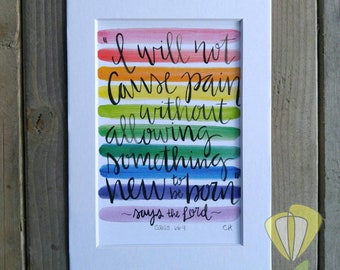 "I will not
Cause pain
without
allowing
something
new to be born"
~says the Lord~
CH